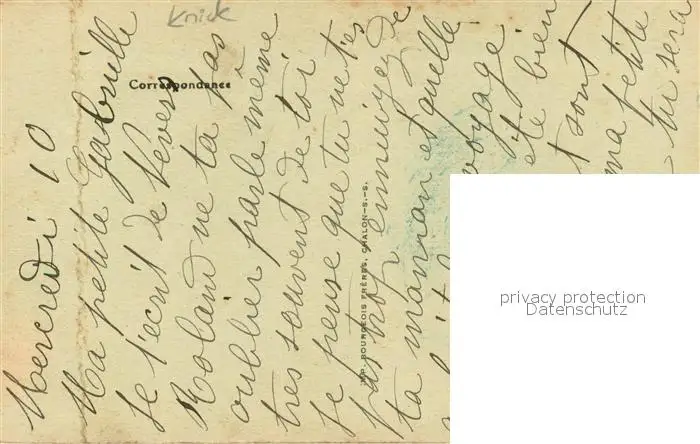 Knick
Correspondance
Mercredi 10
Ma petite Gabrielle
Je t'ecrit de Nevers
Roland ne ta pas
oublier parle même
tres souvent de toi
Je pense que tu ne t'es
pas trop ennuiyez de
ta maman et quelle
voyage
ete bien
t sont
ma petite
tu sera
IMP. BOURGEOIS FRÈRES, CHALON-S.-S.
privacy protection
Datenschutz